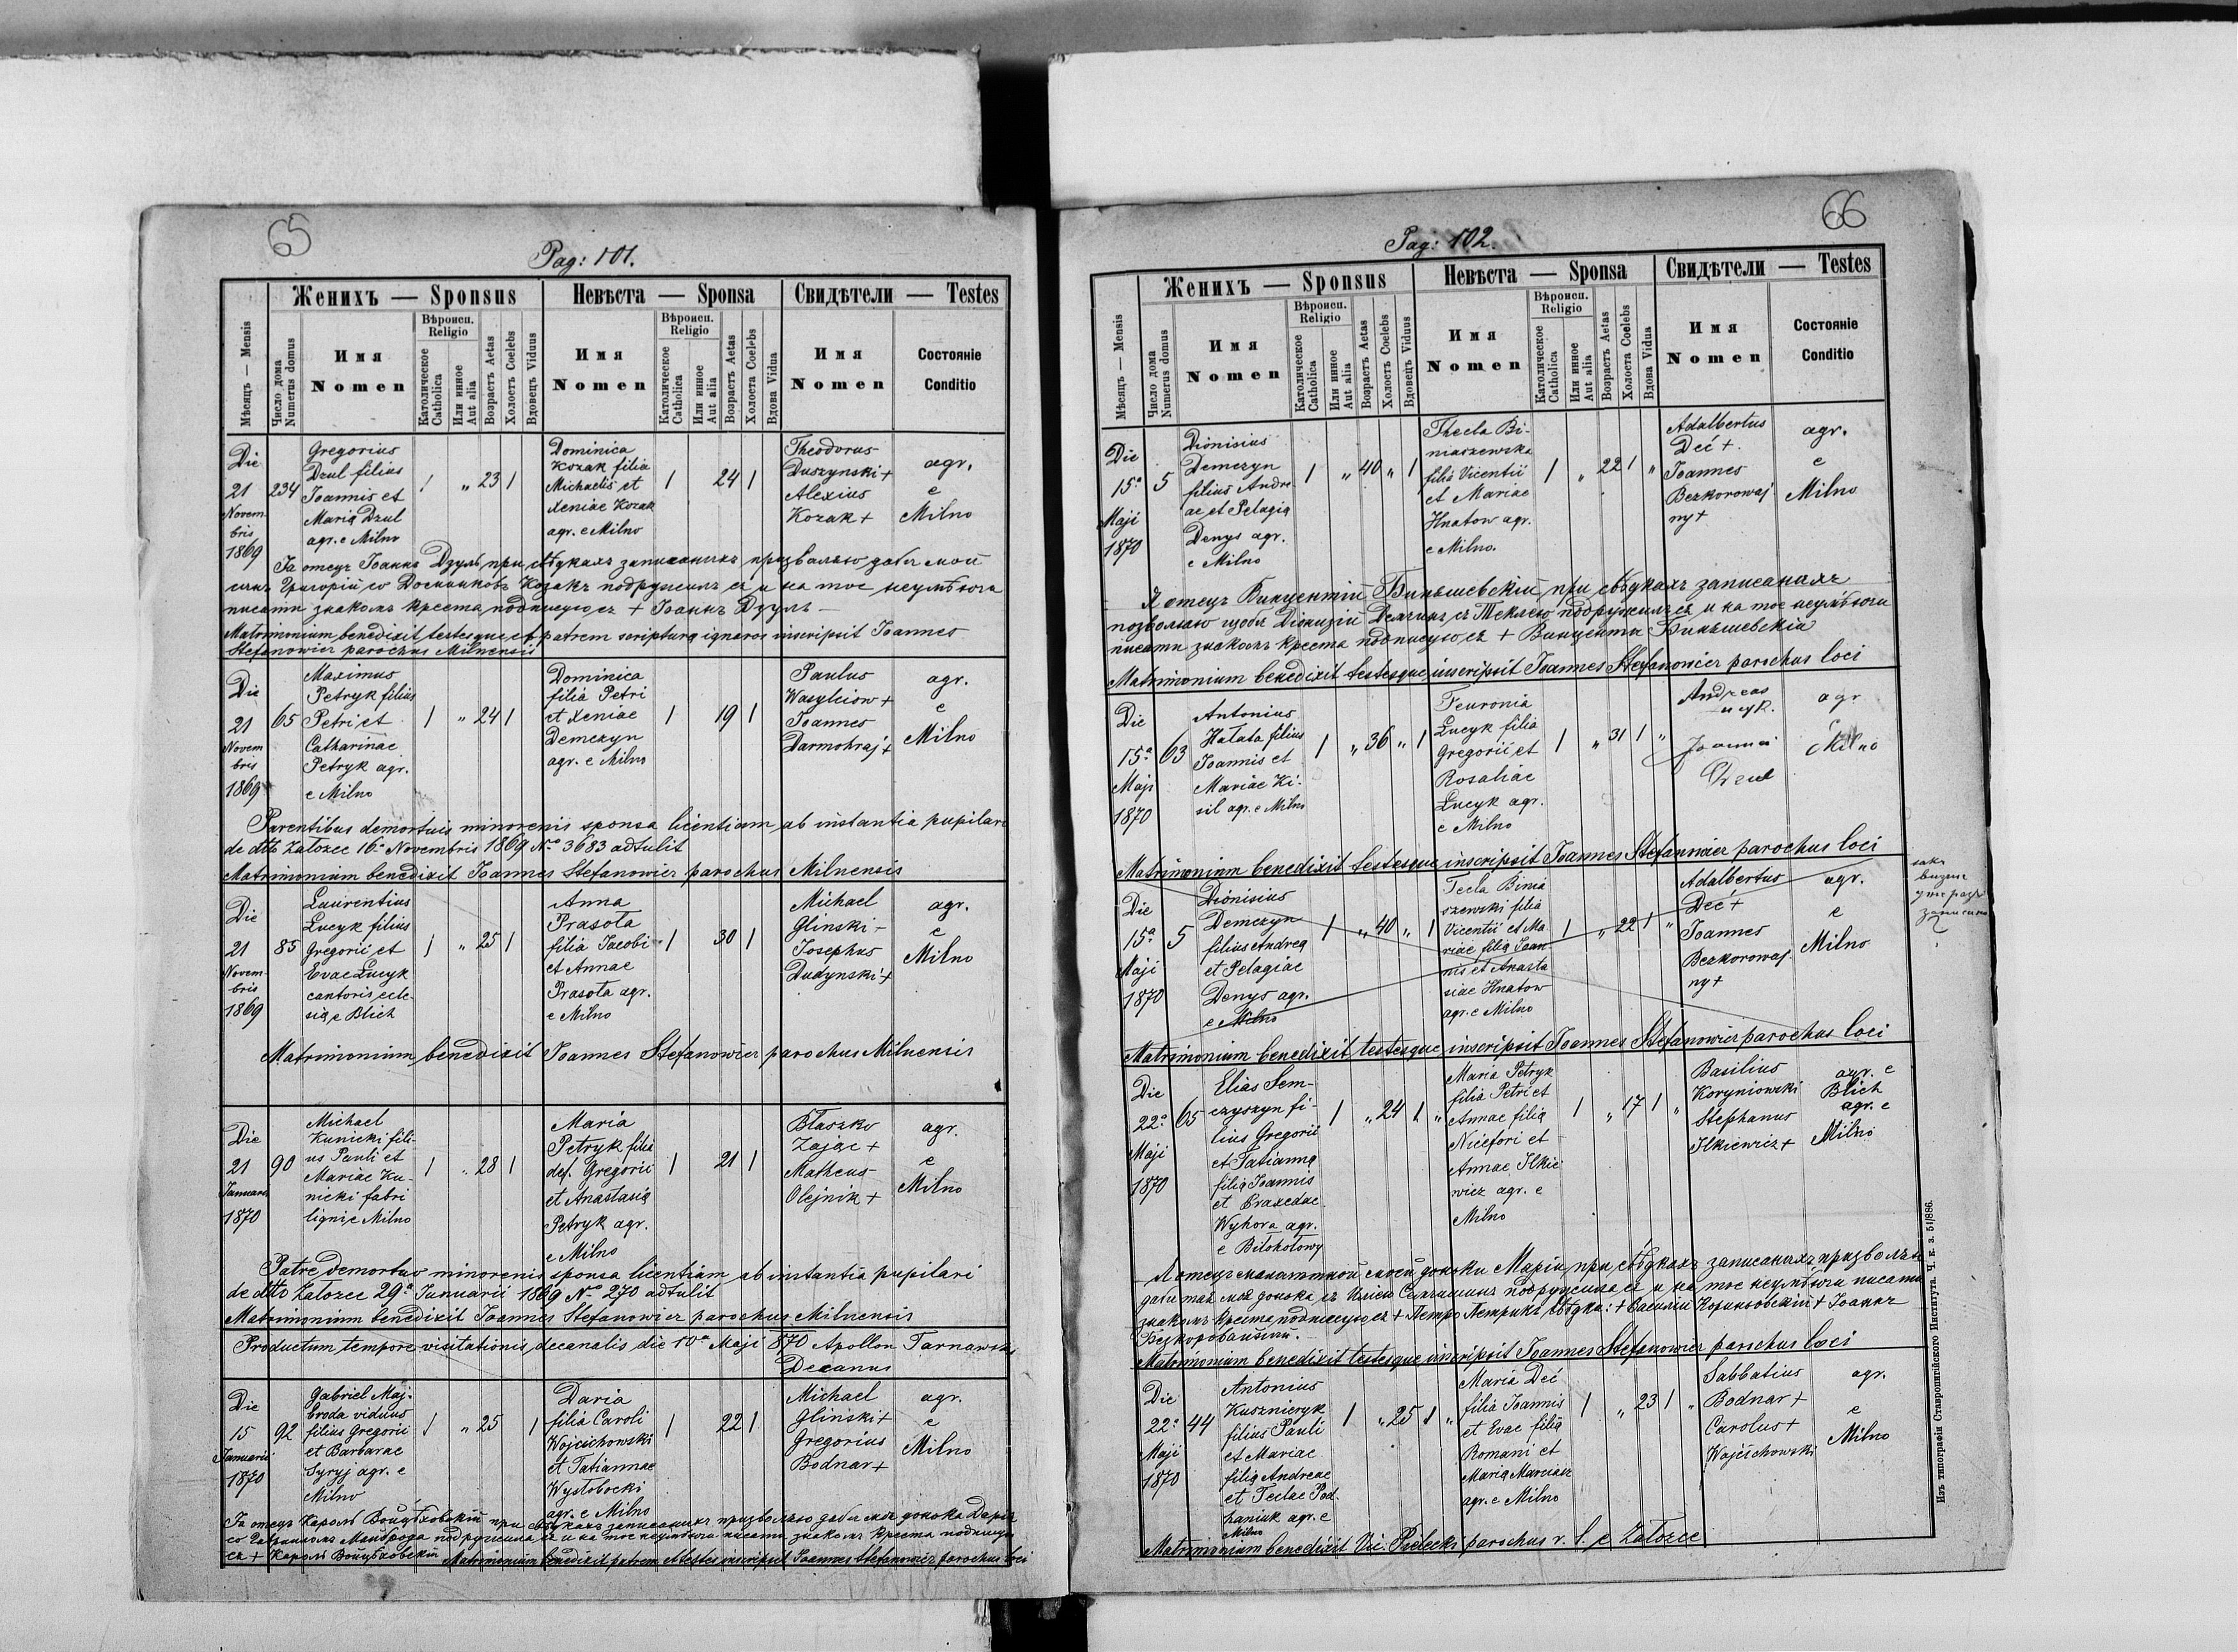 65
Pag: 101.
Женихъ — Sponsus
Невѣста — Sponsa
Свидѣтели — Testes
Мѣсяцъ — Mensis
Число дома
Numerus domus
Имя
Nomen
Вѣроисп.
Religio
Католическое
Catholica
Или инное
Aut alia
Возрастъ Aetas
Холостъ Coelebs
Вдовецъ Viduus
Имя
Nomen
Вѣроисп.
Religio
Католическое
Catholica
Или инное
Aut alia
Возрастъ Aetas
Холоста Coelebs
Вдова Vidua
Имя
Nomen
Состояніе
Conditio
Die
21
Novem-
bris
1869
234
Gregorius
Dzul filius
Joannis et
Maria Dzul
agr. e Milno
1 „ 23 1
Dominica
Kozak filia
Michaelis et
Xeniae Kozak
agr. e Milno
1 24 1
Theodorus
Duszynski +
Alexius
Kozak +
agr.
e
Milno
Я отецъ Іоаннъ Дзулъ при свѣдкахъ записаныхъ призваляю дабы мой
сынъ Григорій со Козакъ подружилъ ся и на тое неумѣюча
писати знакомъ креста подписую ся + Іоаннъ Дзулъ
Matrimonium benedixit testesque et patrem scriptura ignaros inscripsit Joannes
Stefanowicz parochus Milnensis
Die
21
Novem
bris
1869
65
Maximus
Petryk filius
Petri et
Catharinae
Petryk agr.
e Milno
1 „ 24 1
Dominica
filia Petri
et Xeniae
Demczyn
agr. e Milno
1 19 1
Paulus
Wasylciow +
Joannes
Darmohraj +
agr.
e
Milno
Parentibus demortuis minorenis sponsa licentiam ab instantia pupilari
de dtto Załozce 16 Novembris 1869 No 3683 adtulit
Matrimonium benedixit Joannes Stefanowicz parochus Milnensis
Die
21
Novem-
bris
1869
85
Laurentius
Łucyk filius
Gregorii et
Evae Łucyk
cantoris eccle-
sia e Blich
1 „ 25 1
Anna
Prasota
filia Jacobi
et Annae
Prasota agr.
e Milno
1 30 1
Michael
Glinski +
Josephus
Dudynski +
agr.
e
Milno
Matrimonium benedixit Joannes Stefanowicz parochus Milnensis
Die
21
Januarii
1870
90
Michael
Kunicki fili-
us Pauli et
Mariae Ku-
nicki fabri
ligni e Milno
1 „ 28 1
Maria
Petryk filia
def. Gregorii
et Anastasia
Petryk agr.
e Milno
1 21 1
Błaszko
Zajac +
Matheus
Olejnik +
agr.
e
Milno
Patre demortuo minorenis sponsa licentiam ab instantia pupilari
de dtto Załozce 29 Januarii 1869 No 270 adtulit
Matrimonium benedixit Joannes Stefanowicz parochus Milnensis
Productum tempore visitationis decanalis die 10a Maji 870 Apollon Tarnawski
Decanus
Die
15
Januarii
1870
92
Gabriel Maj-
broda viduus
filius Gregorii
et Barbarae
Syryj agr. e
Milno
1 „ 25 1
Daria
filia Caroli
Wojcichowski
et Tatiannae
Wystobocki
agr. e Milno
1 22 1
Michael
Glinski +
Gregorius
Bodnar +
agr.
e
Milno
Я отецъ Кароль Войцѣховскій при свѣдкахъ записаныхъ призваляю дабы моя донька Дарія
со Гавриломъ Майброда подружила ся и на тое неумѣюча писати знакомъ креста подписую
ся + Кароль Войцѣховскій Matrimonium benedixit patrem et testes inscripsit Joannes Stefanowicz parochus loci
66
Pag: 102.
Женихъ — Sponsus
Невѣста — Sponsa
Свидѣтели — Testes
Мѣсяцъ — Mensis
Число дома
Numerus domus
Имя
Nomen
Вѣроисп.
Religio
Католическое
Catholica
Или инное
Aut alia
Возрастъ Aetas
Холостъ Coelebs
Вдовецъ Viduus
Имя
Nomen
Вѣроисп.
Religio
Католическое
Catholica
Или инное
Aut alia
Возрастъ Aetas
Холоста Coelebs
Вдова Vidua
Имя
Nomen
Состояніе
Conditio
Die
15a
Maji
1870
5
Dionisius
Demczyn
filius Andre
ae et Pelagia
Denys agr.
e Milno
1 „ 40 „ 1
Thecla Bi-
niaszewska
filia Vicentii
et Mariae
Hnatow agr.
e Milno.
1 „ 22 1 „
Adalbertus
Deć +
Joannes
Bezkorowaj
ny +
agr.
e
Milno
Я отецъ Винцентій Биняшевскій при свѣдкахъ записаныхъ
позволяю щобы Діонизій Демчинъ съ Теклею подружилъ ся и на тое неумѣючи
писати знакомъ креста подписую ся + Винцентій Биняшевскій
Matrimonium benedixit testesque inscripsit Joannes Stefanowicz parochus loci
Die
15a
Maji
1870
63
Antonius
Hałata filius
Joannis et
Mariae Ki-
sil agr. e Milno
1 „ 36 „ 1
Feuronia
Łucyk filia
Gregorii et
Rosaliae
Łucyk agr.
e Milno
1 „ 31 1 „
Andreas
Joannes
Dzul
agr
e Milno
Matrimonium benedixit testesque inscripsit Joannes Stefanowicz parochus loci
Die
15a
Maji
1870
5
Dionisius
Demczyn
filius Andrea
et Pelagiae
Denys agr.
e Milno
1 „ 40 „ 1
Tecla Binia
szewski filia
Vicentii et Ma
riae filia Joan
nis et Anasta
siae Hnatow
agr. e Milno
1 „ 22 1 „
Adalbertus
Deć +
Joannes
Bezkorowaj
ny +
agr.
e
Milno
Matrimonium benedixit testesque inscripsit Joannes Stefanowicz parochus loci
Die
22a
Maji
1870
65
Elias Sem-
czyszyn fi-
lius Gregorii
et Tatianna
filia Joannis
et Praxedae
Wyhora agr.
e Bitohotowy
1 „ 24 1 „
Maria Petryk
filia Petri et
Annae filia
Nicefori et
Annae Ilkie
wicz agr. e
Milno
1 „ 17 1 „
Basilius
Koryniowski
Stephanus
Ilkiewicz +
agr. e
Blich
agr. e
Milno
Я отецъ моей доньки Маріи при свѣдкахъ записаныхъ призваляю
дабы моя донька съ Иліею подружила ся и на тое неумѣючи писати
знакомъ креста подписую ся + Петро Петрикъ свѣдки: + Василій Кориньовскій + Іоаннъ
Безкоровайный.
Matrimonium benedixit testesque inscripsit Joannes Stefanowicz parochus loci
Die
22a
Maji
1870
44
Antonius
Kusznieryk
filius Pauli
et Mariae
filia Andreae
et Teclae Pod-
haniuk agr. e
Milno
1 „ 25 1 „
Maria Deć
filia Joannis
et Evae filia
Romani et
Maria Marciasz
agr. e Milno
1 „ 23 1 „
Sabbatius
Bodnar +
Carolus +
Wojcichowski
agr.
e
Milno
Matrimonium benedixit Vic. Pielecki parochus r. l. e Załozce
Изъ типографіи Ставропигійского Института. Ч. к. з. 51/886.